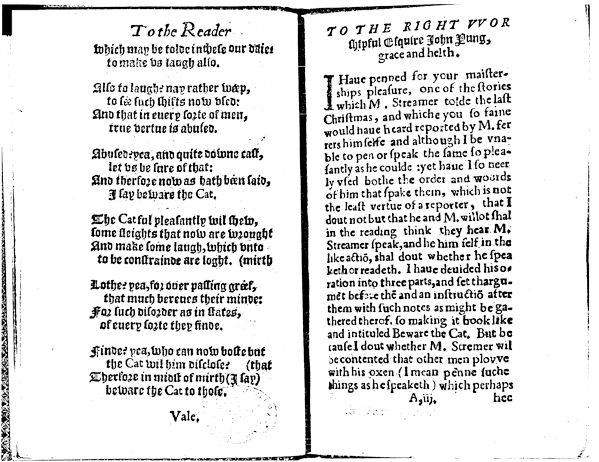 To the Reader
Which may be tolde in these our daies
to make vs laugh also.
Also to laugh? nay rather wéep,
to sée such shifts now vsed:
And that in euery sorte of men,
true vertue is abused.
Abused? yea, and quite downe cast,
let vs be sure of that:
And therfore now as hath béen said,
I say beware the Cat.
The Cat ful pleasantly wil shew,
some sleights that now are wrought
And make some laugh, which vnto
to be constrainde are loght. (mirth
Lothe? yea, for ouer passing gréef,
that much bereues their minde:
For such disorder as in states,
of euery sorte they finde.
Finde? yea, who can now boste but
the Cat wil him disclose? (that
Therfore in midst of mirth (I say)
beware the Cat to those.
Vale.
TO THE RIGHT VVOR
shipful Esquire Iohn Yung,
grace and helth.
I Haue penned for your maister-
ships pleasure, one of the stories
which M. Streamer tolde the last
Christmas, and whiche you so faine
would haue heard reported by M. fer
rers him selfe and although I be vna-
ble to pen or speak the same so plea-
santly as he coulde : yet haue I so neer
ly vsed bothe the order and woords
of him that spake them, which is not
the least vertue of a reporter, that I
dout not but that he and M. willot shal
in the reading think they hear M.
Streamer speak, and he him self in the
like actiō, shal dout whether he spea
keth or readeth. I haue deuided his o-
ration into three parts, and set thargu-
mēt before thē and an instructiō after
them with such notes as might be ga-
thered therof. so making it book like
and intituled Beware the Cat. But be
cause I dout whether M. Stremer wil
be contented that other men plovve
with his oxen (I mean penne suche
things as he speaketh) which perhaps
A,iij. hee